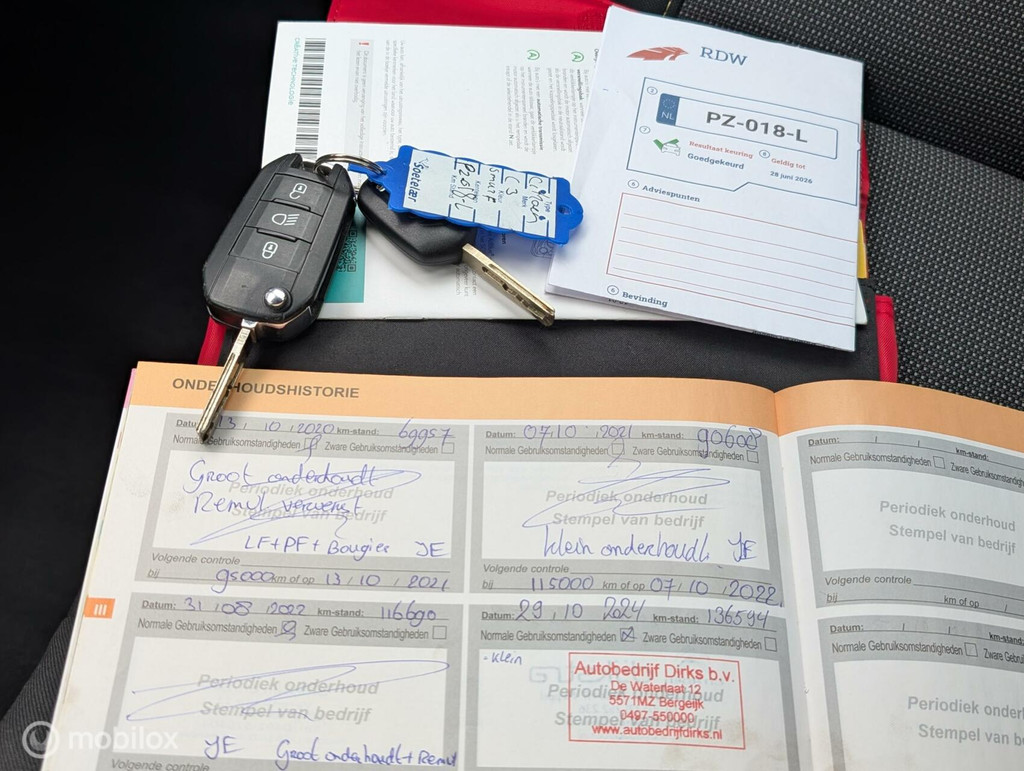 RDW
NL
PZ-018-L
Resultaat keuring
Goedgekeurd
Geldig tot
28 juni 2026
Adviespunten
Bevinding
CREATIVE TECHNOLOGIE
Type
Merk
Kleur
Kenteken
Km Stand
Citroën
C3
ONDERHOUDSHISTORIE
Datum: 13 / 10 / 2020 km-stand: 69957
Normale Gebruiksomstandigheden Zware Gebruiksomstandigheden
Periodiek onderhoud
Stempel van bedrijf
Groot onderhoudt
Remvl ververst
LF+PF+Bougies JE
Volgende controle
bij 95000 km of op 13 / 10 / 2021
Datum: 07 / 10 / 2021 km-stand: 90608
Normale Gebruiksomstandigheden Zware Gebruiksomstandigheden
Periodiek onderhoud
Stempel van bedrijf
klein onderhoudt JE
Volgende controle
bij 115000 km of op 07 / 10 / 2022
Datum: / / km-stand:
Normale Gebruiksomstandigheden Zware Gebruiksomstandigheden
Periodiek onderhoud
Stempel van bedrijf
Volgende controle
bij km of op /
III
Datum: 31 / 08 / 2022 km-stand: 116690
Normale Gebruiksomstandigheden Zware Gebruiksomstandigheden
Periodiek onderhoud
Stempel van bedrijf
JE Groot onderhoudt + Remvl
Volgende controle
Datum: 29 / 10 / 2024 km-stand: 136594
Normale Gebruiksomstandigheden Zware Gebruiksomstandigheden
- klein
Periodiek onderhoud
Stempel van bedrijf
Autobedrijf Dirks b.v.
De Waterlaat 12
5571MZ Bergeijk
0497-550000
www.autobedrijfdirks.nl
Datum: / / km-stand:
Normale Gebruiksomstandigheden Zware
Periodiek onderhoud
Stempel van bedrijf
mobilox